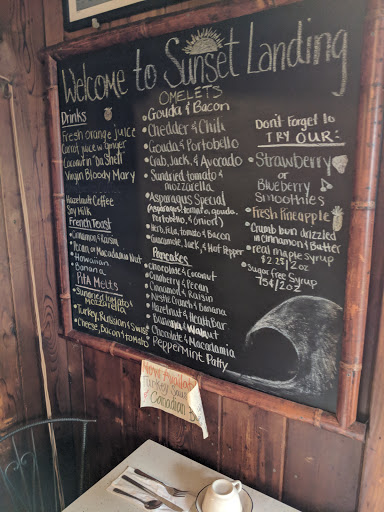 Welcome to Sunset Landing
Drinks
Fresh orange juice
Carrot juice w/ ginger
Coconut in "Da Shell"
Virgin Bloody Mary
Hazelnut Coffee
Soy Milk
French Toast
• Cinnamon & Raisin
• Pecan or Macadamia Nut
• Hawaiian
• Banana
Pita Melts
• Sundried tomato & Mozzarella
• Turkey, Russian & Swiss
• Cheese, Bacon & tomato
OMELETS
• Gouda & Bacon
• Chedder & Chili
• Gouda & Portobello
• Crab, Jack, & Avocado
• Sundried tomato & mozzarella
• Asparagus Special
(Asparagus, tomato, gouda, Portobello, & Onion)
• Herb, Feta, tomato & Bacon
• Guacamole, Jack, & Hot Pepper
Pancakes
• chocolate & Coconut
• Cranberry & Pecan
• Cinnamon & Raisin
• Nestle Crunch & Banana
• Hazelnut & Heath Bar
• Banana & Walnut
• Chocolate & Macadamia
• Peppermint Patty
Don't Forget to
TRY OUR:
• Strawberry
or
Blueberry
Smoothies
• Fresh Pineapple
• Crumb bun drizzled
in Cinnamon & Butter
• real maple syrup
$2.25/2oz
• Sugar Free Syrup
75¢/2oz
Now Available
Turkey
Canadian